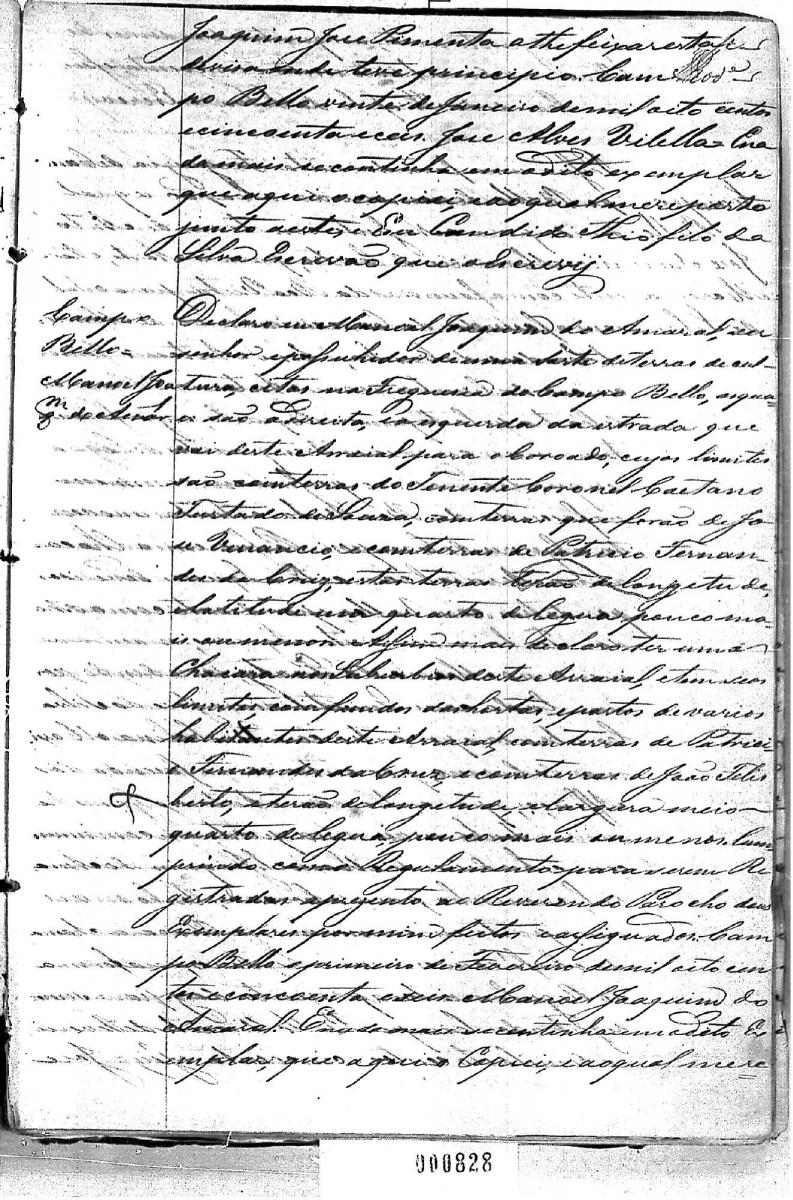 Joaquim Jose Pimenta athe feixar esta
devisa onde teve principio. Cam
po Bello vinte de Janeiro de mil oito centos
e cincoenta e ceis Jose Alves Vilella = E na
da mais se continha em o dito exemplar
que aqui o copiei, e ao qual me reporto
junto a este, e Eu Candido Thiofilo da
Silva Escrivão que o Escrevij
Campo
Bello =
Manoel Joa
qm do Amaral
Declaro eu Manoel Joaquim do Amaral, ser
senhor e possuhidor de uma sorte de terras de cul-
tura, citas na Freguezia do Campo Bello, a qua-
es são a Direita, e a esquerda da estrada que
vai deste Arraial para o Coroado, cujos limites
são com terras do Tenente Coronel Caetano
Furtado de Souza, com terras que forão de Jo
se Venancio, e com terras de Patricio Fernan-
des da Cruz, estas terras terão de longetude,
e latitude um quarto de legua pouco ma-
is ou menos. Assim mais declaro ter uma
Chacara nos Suburbios deste Arraial, e tem seos
limites, com fundos das hortas, e pastos de varios
habitantes deste Arraial, com terras de Patrici
o Fernandes da Cruz, e com terras de João Felis
berto, e terão de longetude, e largura meio
quarto de legua pouco mais ou menos. Cum
prindo com o Regulamento para serem Re
gistradas apresento ao Reverendo Parocho dous
Exemplares por mim feitos e assignados. Cam
po Bello o primeiro de Fevereiro de mil oito cen
tos e concoenta e ceis Manoel Joaquim do
Amaral. E nada mais se continha em o dito Ex
emplar, que aqui o Copiei, e ao qual me re=
000828